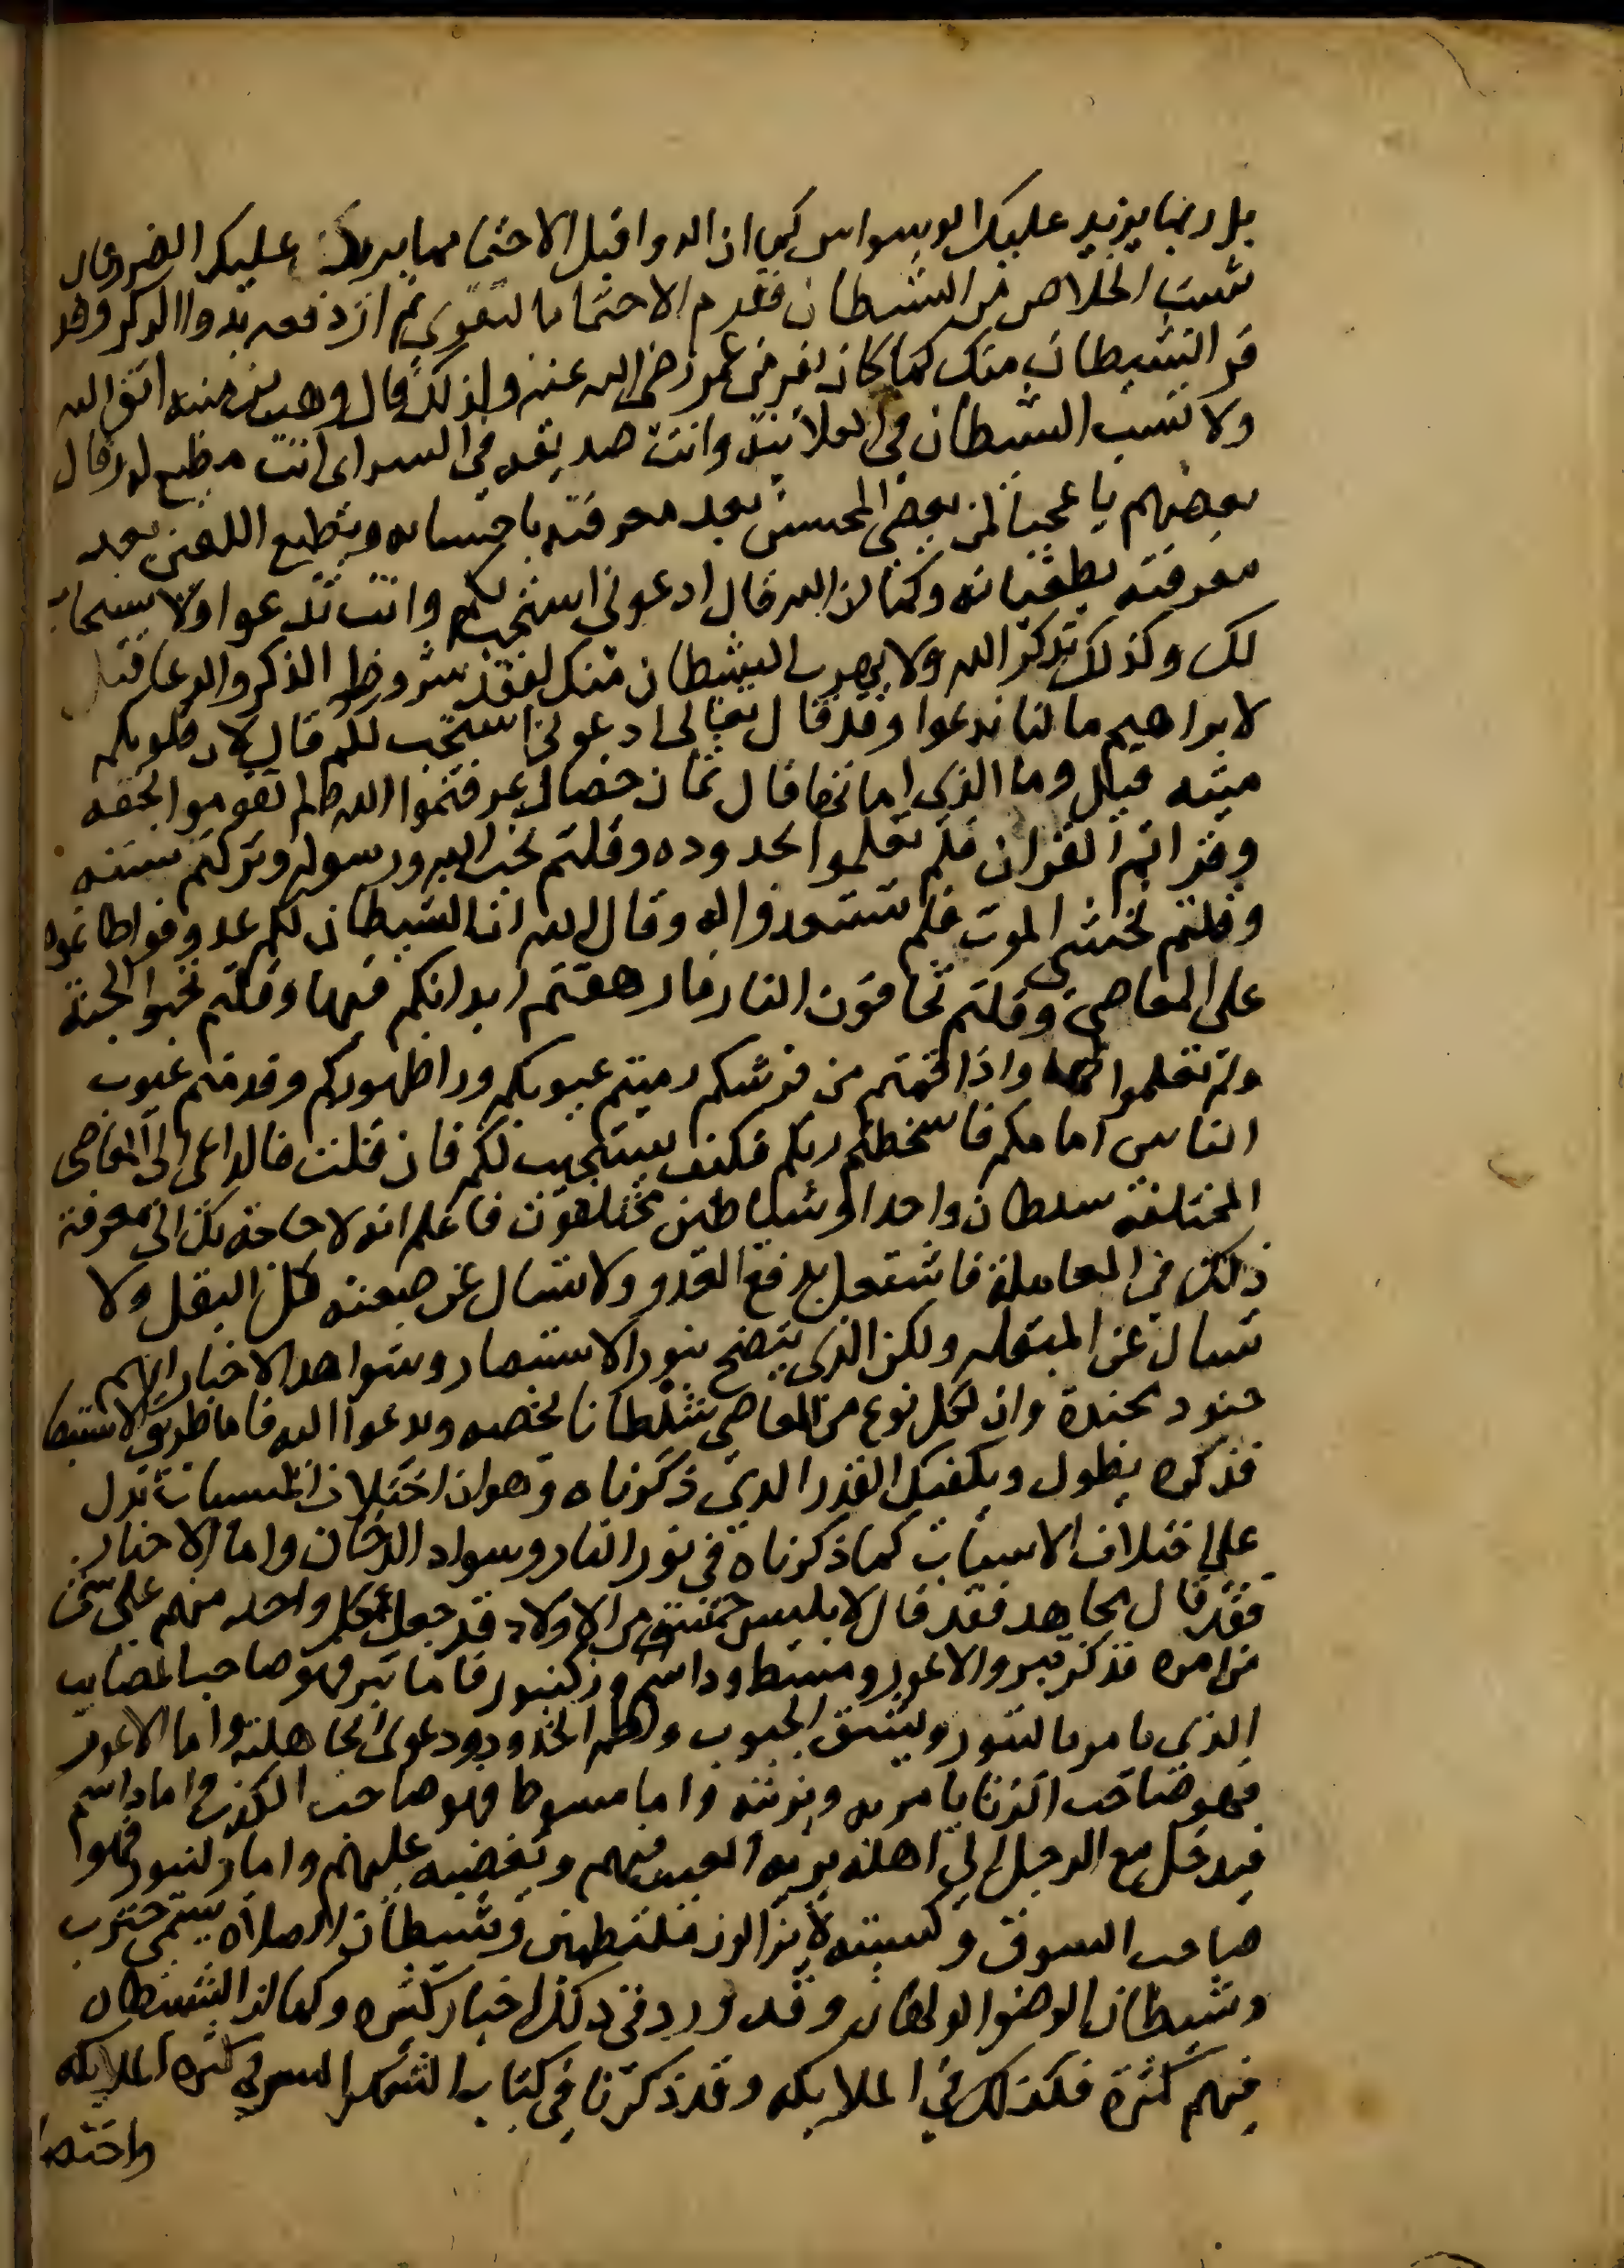 بل ربما يزيد عليك الوسواس كما ان الدوا قبل الاحتما ربما يزيد عليك الضرر فان
شئت الخلاص من الشيطان فقدم الاحتما بالتقوي ثم اردفه بدوا الذكر وقد
فر الشيطان منك كما كان يفر من عمر رضى الله عنه ولذلك قال وهب بن منبه اتق الله
ولا تسب الشيطان في العلانية وانت صديقه في السر اى انت مطيع له وقال
بعضهم يا عجبا لمن يعصى المحسن بعد معرفته باحسانه ويطيع اللعين بعد
معرفته بطغيانه وكما ان الله قال ادعوني استجب لكم وانت تدعوا ولا يستجاب
لك وكذلك تذكر الله ولا يهرب الشيطان منك لفقد شروط الذكر والدعا قيل
لابراهيم ما لنا ندعوا وقد قال تعالى ادعوني استجب لكم قال لان قلوبكم
ميته قيل وما الذي اماتها قال ثمان خصال عرفتموا الله ولم تقوموا بحقه
وقراتم القران فلم تعلموا بحدوده وقلتم نحب الله ورسوله وتركتم سنته
وقلتم نخشى الموت فلم تستعدوا له وقال الله ان الشيطان لكم عدو فواطاتموه
على المعاصي وقلتم نخافون النار فارهقتم ابدانكم فيها وقلتم نحبوا الجنة
ولم تعلموا لها واذا قمتم من فرشكم رميتم عيوبكم ورا ظهوركم وقدمتم عيوب
الناس امامكم فاسخطتم ربكم فكيف يستجيب لكم فان قلت فالداعى الى المعاصى
المختلفة سلطان واحد او شياطين مختلفون فاعلم انه لا حاجة لك الى معرفة
ذلك في المعاملة فاشتغل بدفع العدو ولا تسال عن صفته كل البقل ولا
تسال عن المبقله ولكن الذى يتضح بنور الاستبصار وشواهد الاخبار انهم
جنود مجندة وان لكل نوع من المعاصي شيطانا يخصه ويدعوا اليه فاما طريق الاستبصا
فذكره يطول ويكفيك القدر الذى ذكرناه وهو ان اختلاف المسببات تدل
على اختلاف الاسباب كما ذكرناه في نور النار وسواد الدخان واما الاخبار
فقد قال مجاهد فقد قال لابليس خمسة من الاولاد قد جعل كل واحد منهم على شى
من امره فذكر ثبر والاعور ومسط وداسم وزلنبور فاما ثبر فهو صاحب المصايب
الذي يامر بالثبور ويشق الجيوب ولطم الخدود ودعوى الجاهلية واما الاعور
فهو صاحب الزنا يامر به ويزينه واما مسوط فهو صاحب الكذب واما داسم
فيدخل مع الرجل الى اهله يريه العيب فيهم ويغضبه عليهم واما زلنبور فهو
صاحب السوق وبسببه لا يزالون متلطمين وشيطان الصلاه يسمى خنزب
وشيطان الوضوا الولهان وقد ورد فى ذلك اخبار كثيره وكما ان الشيطان
فيهم كثرة فكذلك في الملايكه وقد ذكرنا في كتاب الشكر السر في كثرة الملايكه
واختصا